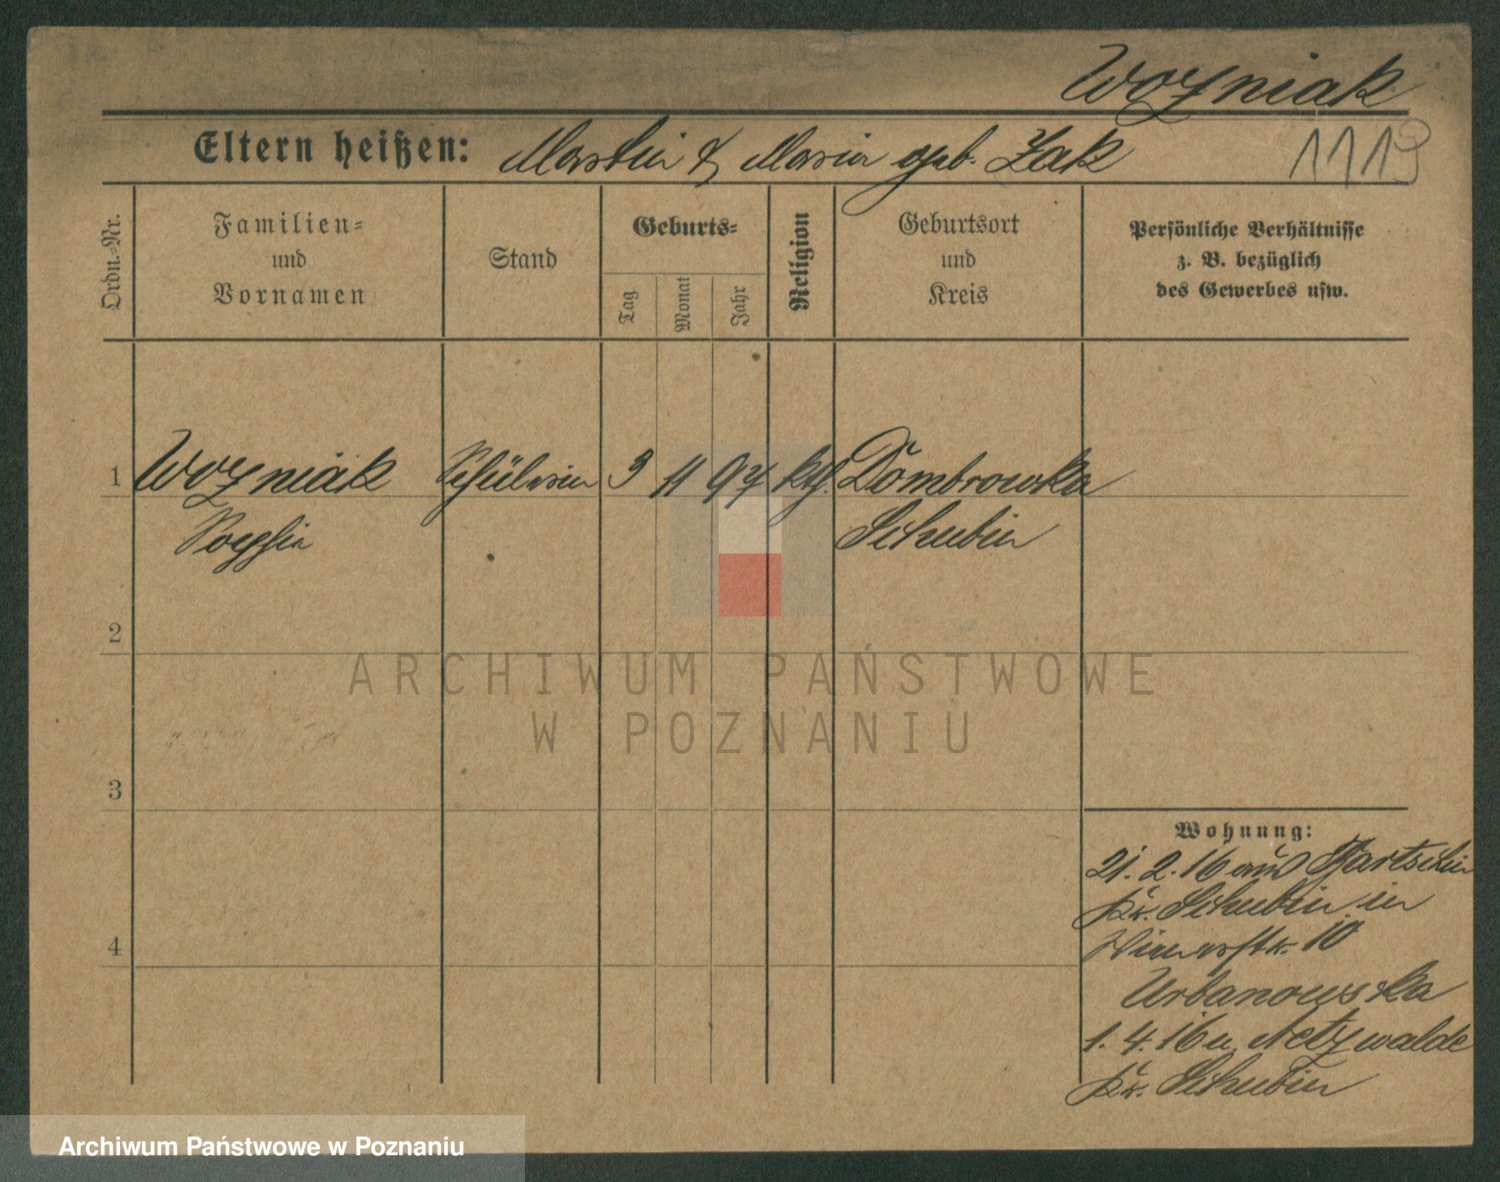 Wozniak
Eltern heißen: Martin & Maria geb. Zak
1119
Ordn.-Nr.
Familien- und Vornamen
Stand
Geburts-
Tag
Monat
Jahr
Religion
Geburtsort und Kreis
Persönliche Verhältnisse
z. B. bezüglich
des Gewerbes usw.
1 Wozniak Schülerin 3 11 97 kth. Dombrowka
Sophia Schubin
2
3
4
Wohnung:
21.2.16 aus Bartschin
Kr. Schubin in
10
Urbanowska
1.4.16 n. Netzwalde
Kr. Schubin
ARCHIWUM PAŃSTWOWE
W POZNANIU
Archiwum Państwowe w Poznaniu